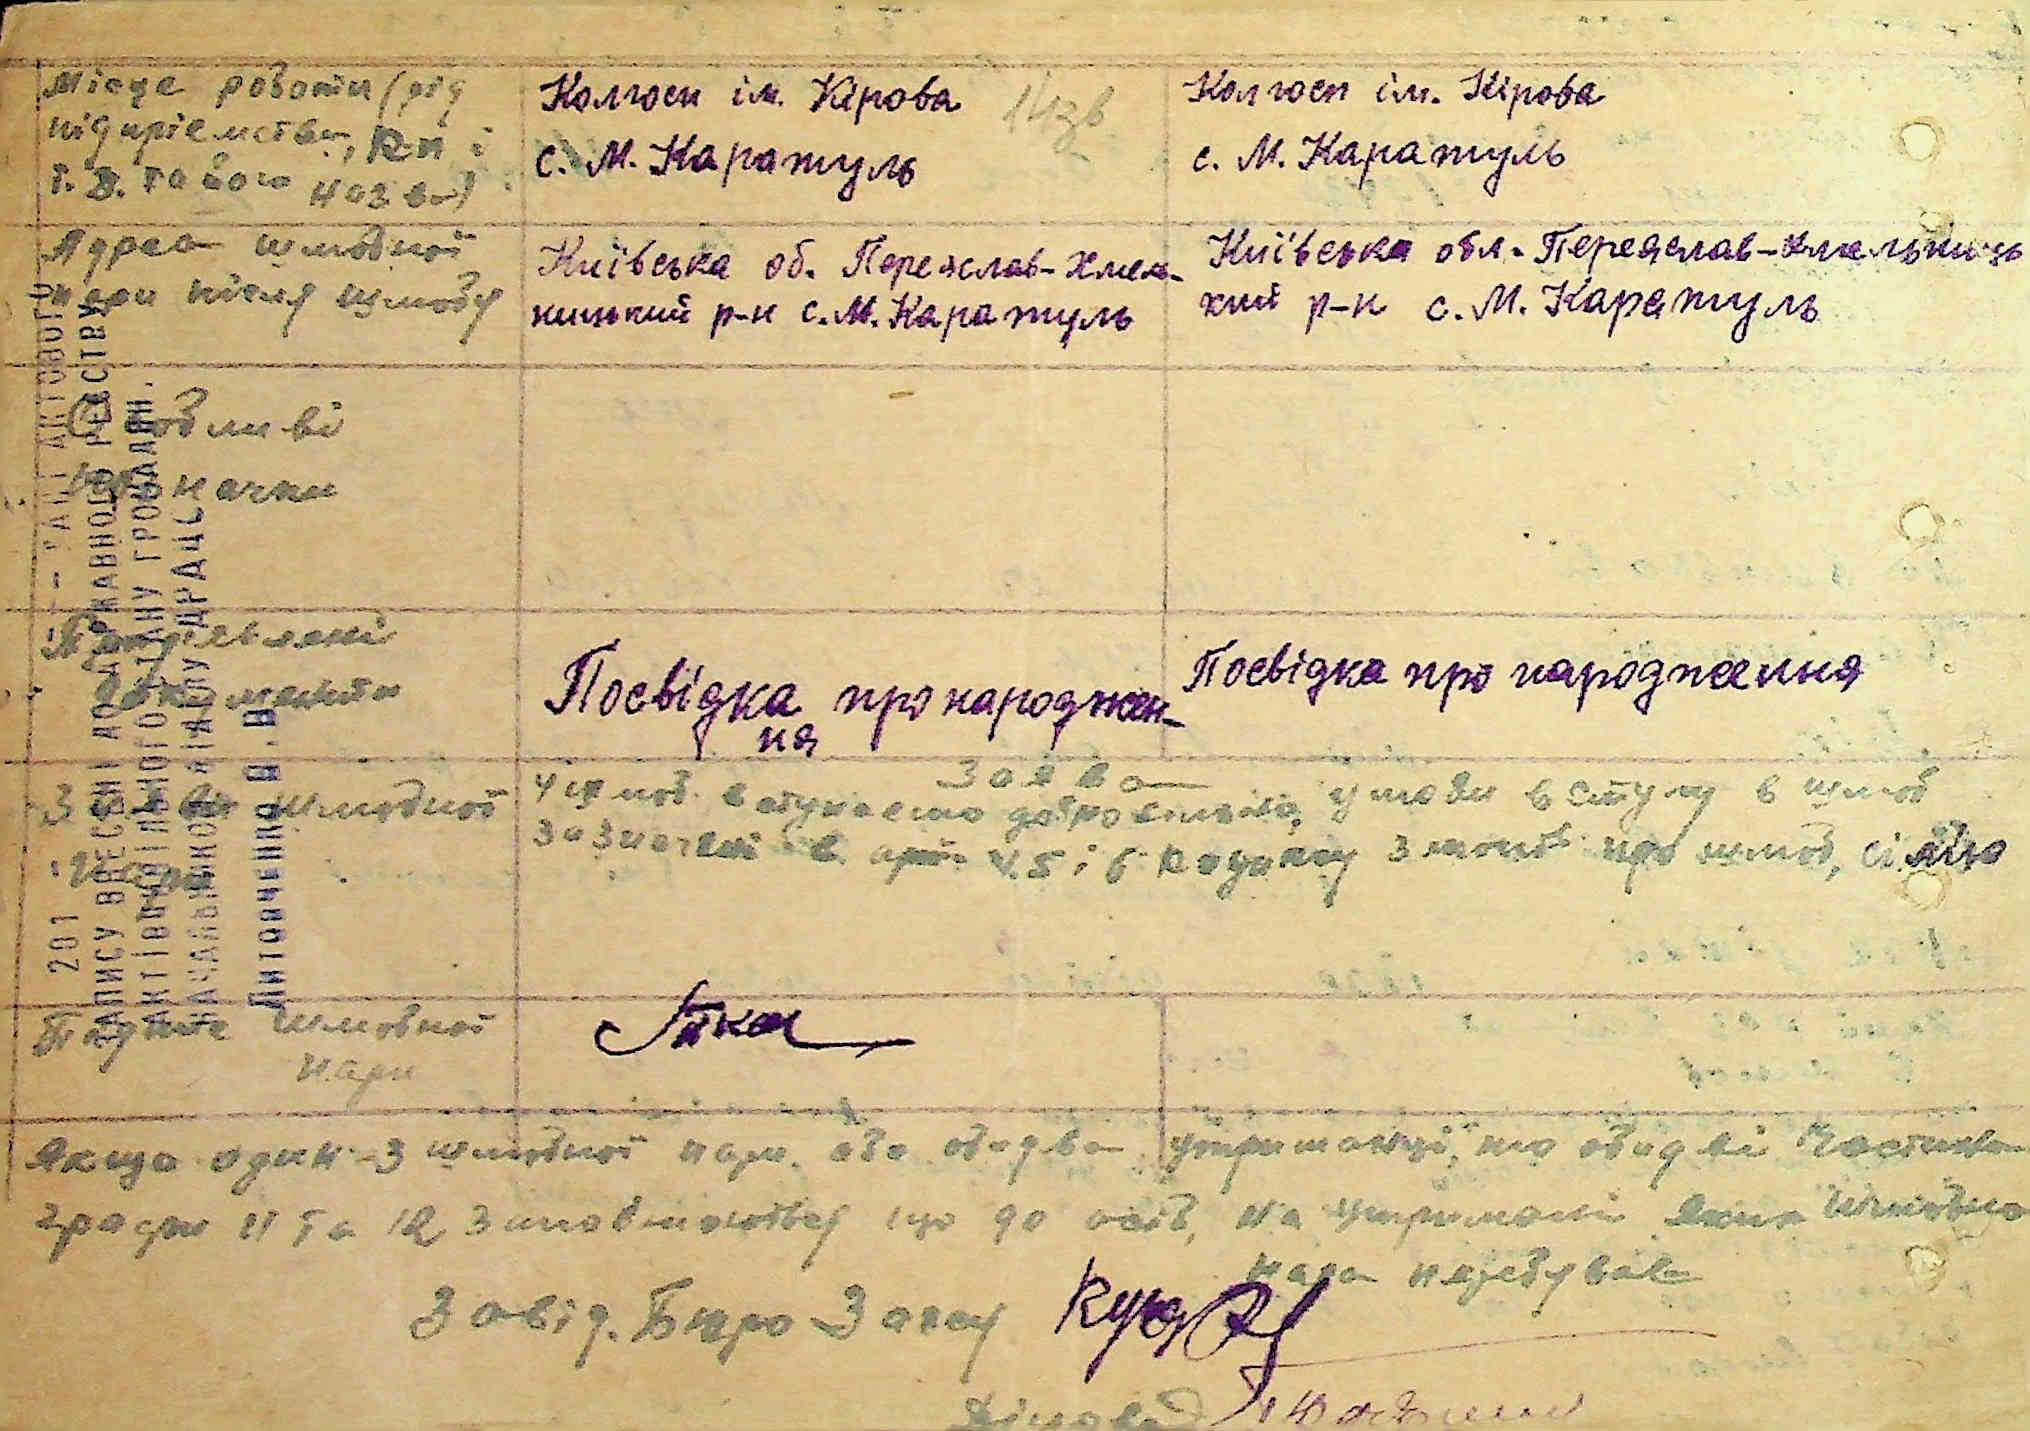 Місце роботи (рід
підприємства, к-п і
т. д. та його назва)
Колгосп ім. Кірова
с. М. Каратуль
Колгосп ім. Кірова
с. М. Каратуль
Адреса шлюбної
пари після шлюбу
Київська об. Переяслав-Хмель-
ницький р-н с. М. Каратуль
Київська обл. Переяслав-Хмельниць
кий р-н с. М. Каратуль
Особливі
позначки
Пред'явлені
документи
Посвідка про народжен-
ня
Посвідка про народження
шлюбної
Заява
У шлюб вступаємо добровільно, умови вступу в шлюб
зазначені в арт. 4.5 і 6 кодексу законів про шлюб, сім'ю
Підписи шлюбної
пари
Якщо один з шлюбної пари або обидва утриманці, то обидві частини
графи 11 та 12 заповнюються що до осіб, на утриманні яких шлюбна
пара перебуває
Завід. Бюро Загсу
Діловод
201
ЗАПИСУ ВНЕСЕНІ ДО ДЕРЖАВНОГО РЕЄСТРУ
АКТІВ ЦИВІЛЬНОГО СТАНУ ГРОМАДЯН.
НАЧАЛЬНИКОМ ВІДДІЛУ ДРАЦС